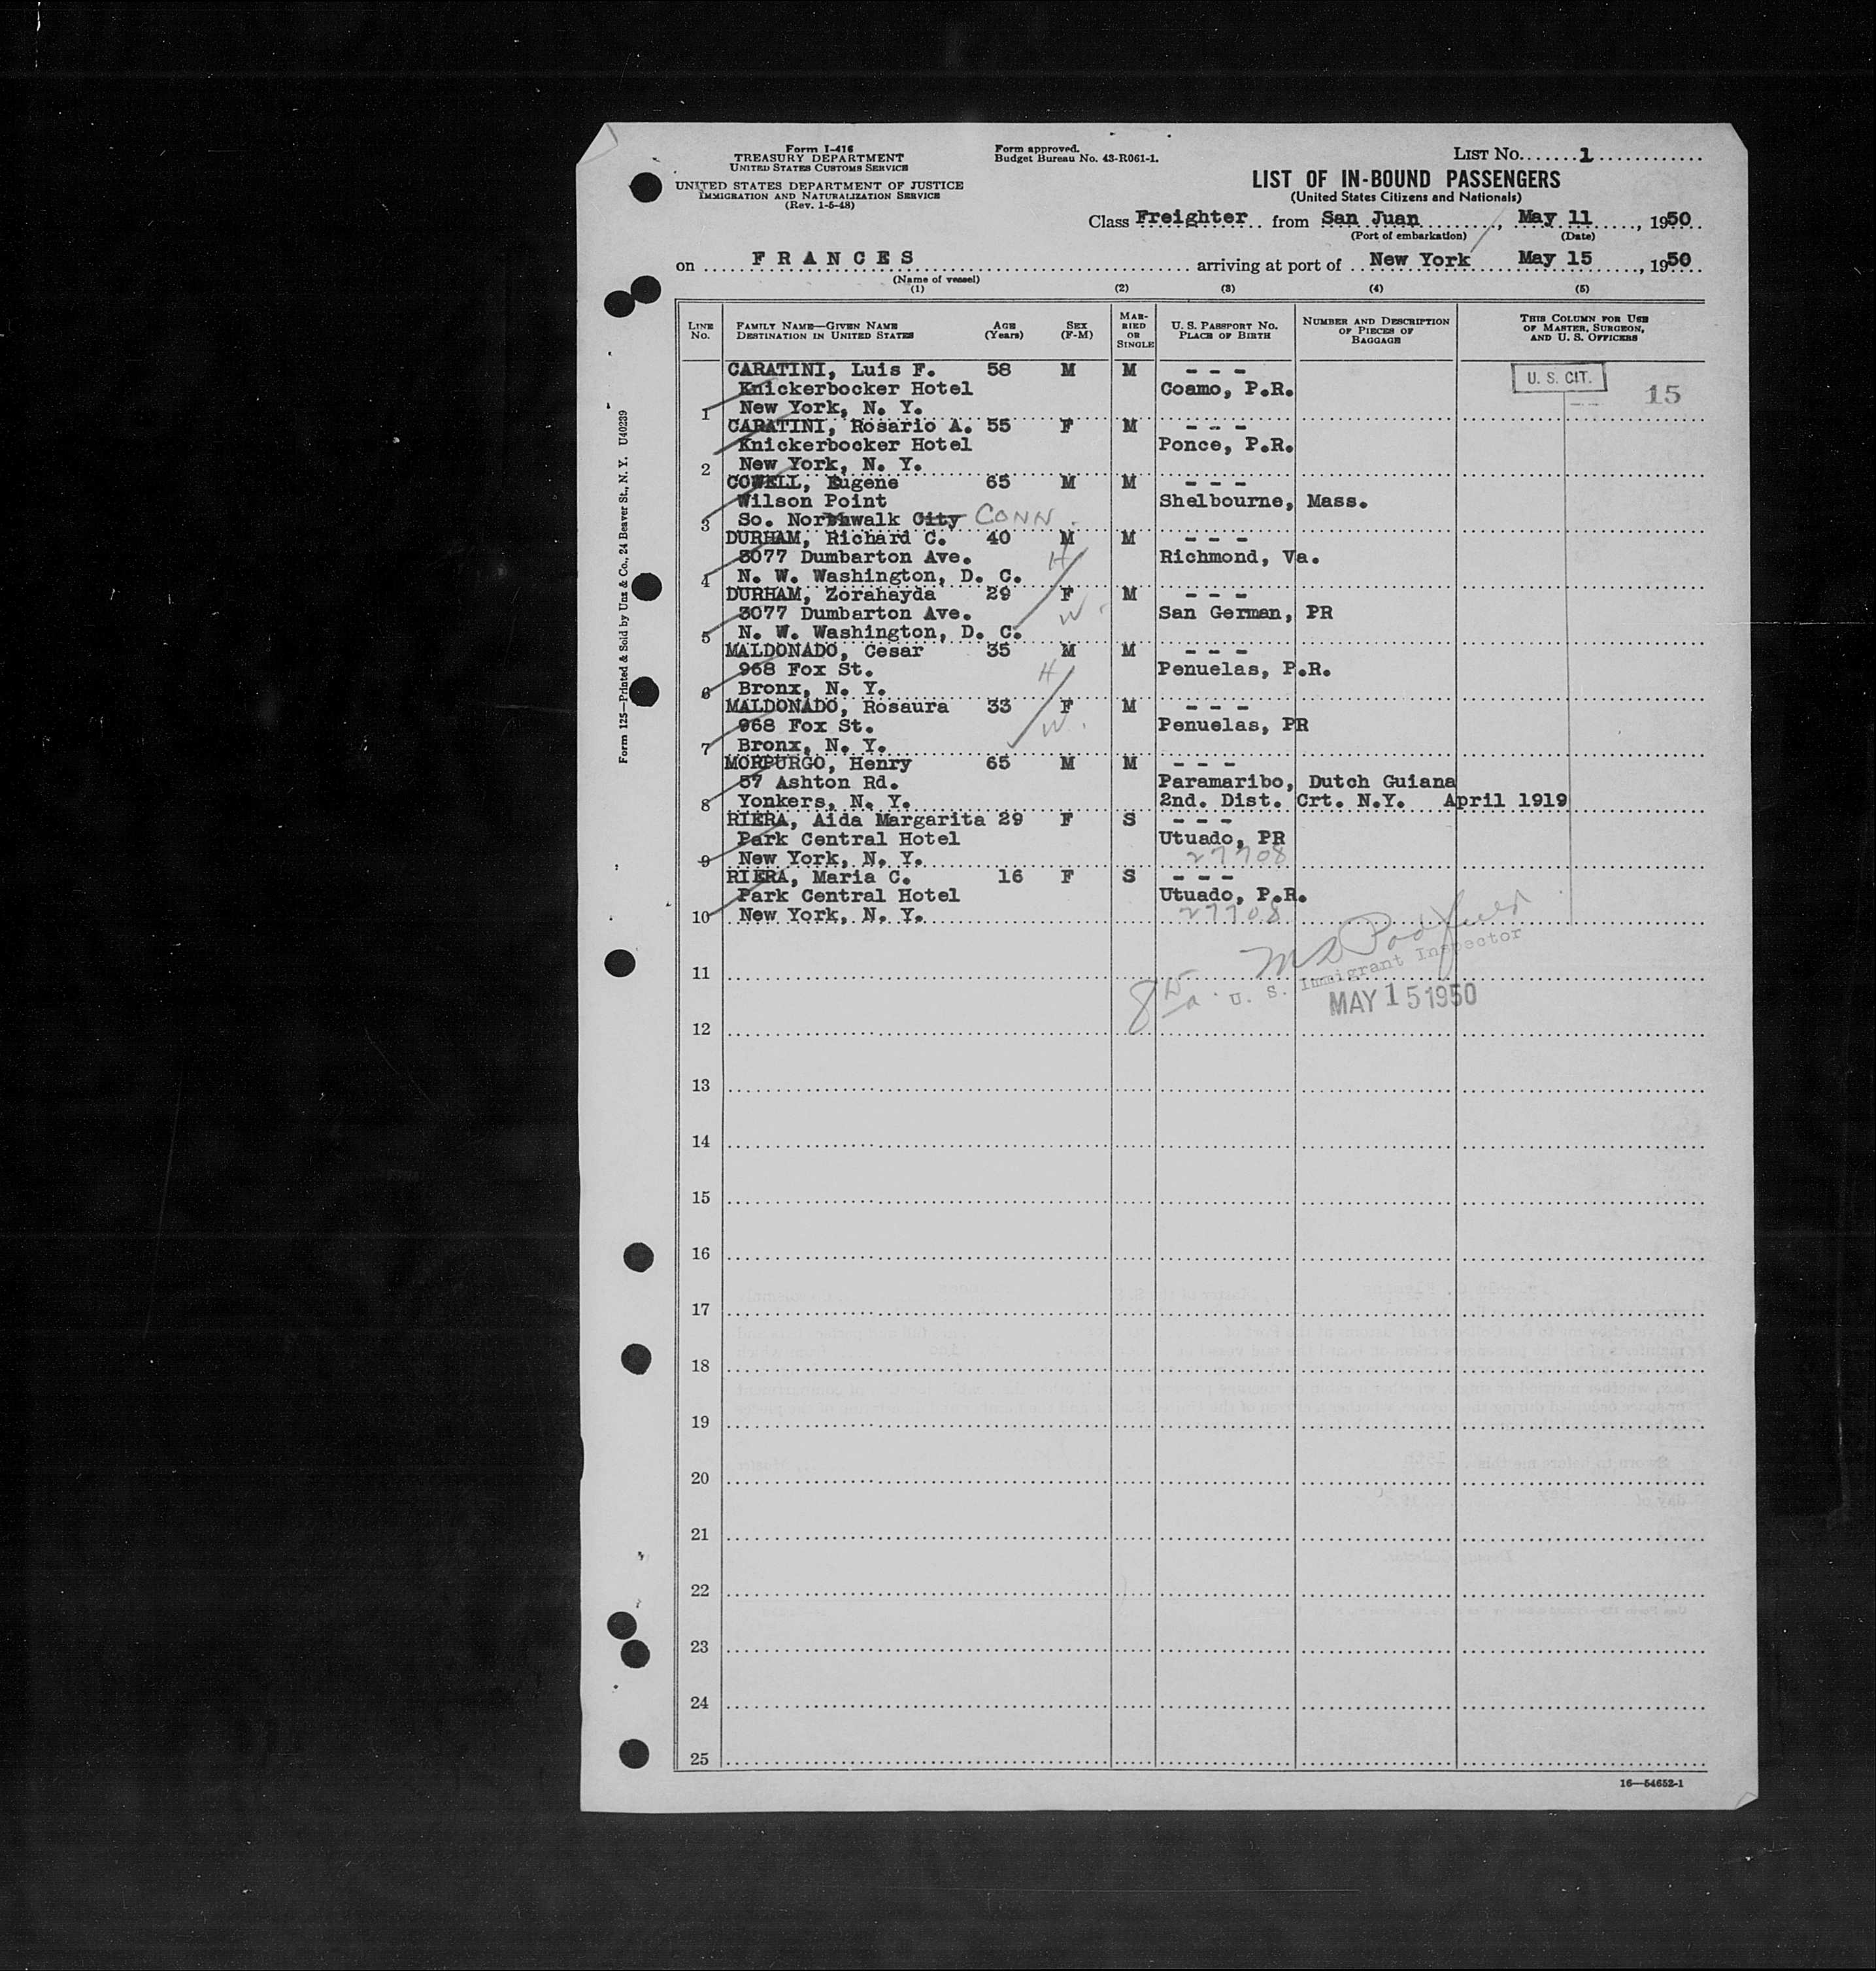 Form I-416
TREASURY DEPARTMENT
UNITED STATES CUSTOMS SERVICE
UNITED STATES DEPARTMENT OF JUSTICE
IMMIGRATION AND NATURALIZATION SERVICE
(Rev. 1-5-48)
Form approved.
Budget Bureau No. 43-R061-1.
LIST No. 1
LIST OF IN-BOUND PASSENGERS
(United States Citizens and Nationals)
Class Freighter from San Juan, May 11, 1950
(Port of embarkation) (Date)
on FRANCES arriving at port of New York May 15, 1950
(Name of vessel)
(1) (2) (3) (4) (5)
LINE No. FAMILY NAME—GIVEN NAME DESTINATION IN UNITED STATES AGE (Years) SEX (F-M) MARRIED OR SINGLE U. S. PASSPORT No. PLACE OF BIRTH NUMBER AND DESCRIPTION OF PIECES OF BAGGAGE THIS COLUMN FOR USE OF MASTER, SURGEON, AND U. S. OFFICERS
CARATINI, Luis F. 58 M M - - - U. S. CIT.
Knickerbocker Hotel Coamo, P.R. 15
1 New York, N. Y.
CARATINI, Rosario A. 55 F M - - -
Knickerbocker Hotel Ponce, P.R.
2 New York, N. Y.
COWELL, Eugene 65 M M - - -
Wilson Point Shelbourne, Mass.
3 So. Norwalk City CONN.
DURHAM, Richard C. 40 M M - - -
3077 Dumbarton Ave. H Richmond, Va.
4 N. W. Washington, D. C.
DURHAM, Zorahayda 29 F M - - -
3077 Dumbarton Ave. W. San German, PR
5 N. W. Washington, D. C.
MALDONADO, Cesar 35 M M - - -
968 Fox St. H Penuelas, P.R.
6 Bronx, N. Y.
MALDONADO, Rosaura 33 F M - - -
968 Fox St. W. Penuelas, PR
7 Bronx, N. Y.
MORPURGO, Henry 65 M M - - -
57 Ashton Rd. Paramaribo, Dutch Guiana
8 Yonkers, N. Y. 2nd. Dist. Crt. N.Y. April 1919
RIERA, Aida Margarita 29 F S - - -
Park Central Hotel Utuado, PR
9 New York, N. Y. 27708
RIERA, Maria C. 16 F S - - -
Park Central Hotel Utuado, P.R.
10 New York, N. Y. 27708
U. S. Immigrant Inspector
11
MAY 15 1950
12
13
14
15
16
17
18
19
20
21
22
23
24
25
16—54652-1
Form 125—Printed & Sold by Unz & Co., 24 Beaver St., N. Y. U40239